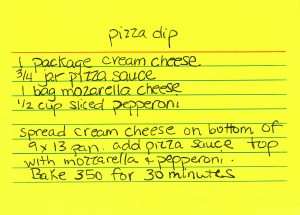 pizza dip
1 package cream cheese
3/4 jar pizza sauce
1 bag mozarella cheese
1/2 cup sliced pepperoni
spread cream cheese on bottom of
9 x 13 pan. add pizza sauce top
with mozzarella & pepperoni.
Bake 350 for 30 minutes